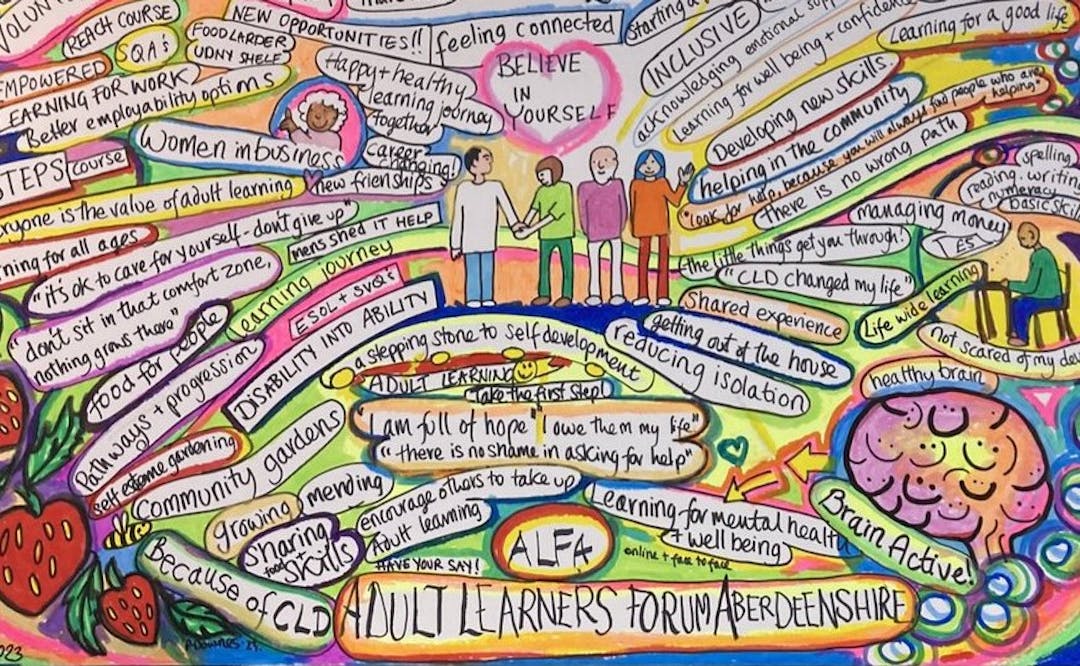 REACH COURSE
SQA's
NEW OPPORTUNITIES!!
FOOD LARDER
UDNY SHELF
feeling connected
Starting a
INCLUSIVE
acknowledging emotional supp
Learning for well being + confidence
Learning for a good life
EMPOWERED
LEARNING FOR WORK
Better employability options
Happy + healthy
learning journey
together
BELIEVE
IN
YOURSELF
Developing new skills
helping in the community
"Look for help, because you will always find people who are
helping"
there is no wrong path
Women in business
Career
changing!
new frienships
STEPS course
ryone is the value of adult learning
rning for all ages
"it's ok to care for yourself - don't give up"
mens shed IT HELP
don't sit in that comfort zone,
nothing grows there"
learning journey
ESOL + SVQ's
DISABILITY INTO ABILITY
food for people
Pathways + progression
self esteeme gardening
Community gardens
growing
mending
sharing
food +
skills
Because of CLD
spelling
reading. writing
numeracy
basic skil
managing money
the little things get you through!
"CLD changed my life"
Shared experience
Life wide learning
getting out of the house
reducing isolation
not scared of my
healthy brain
a stepping stone to self development
ADULT LEARNING
Take the first step!
"I am full of hope" "I owe them my life"
"there is no shame in asking for help"
encourage others to take up
Adult learning
HAVE YOUR SAY!
Learning for mental health
+ well being
online + face to face
Brain Active!
ALFA
ADULT LEARNERS FORUM ABERDEENSHIRE